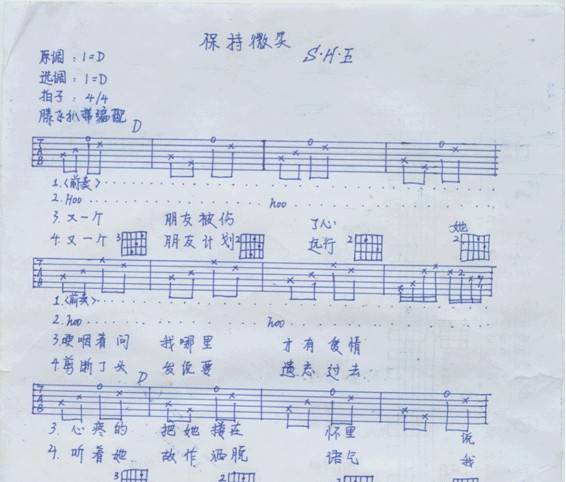 保持微笑
S·H·E
原调:1=D
选调:1=D
拍子:4/4
滕飞扒带编配
D
T
A
B
1.<前奏>
2. Hoo hoo
3. 又一个 朋友被伤 了心 她
4. 又一个 朋友计划 远行
3 2 2 2
T
A
B
2
1.<前奏>
2. hoo hoo
3. 哽咽着问 我哪里 才有爱情
4. 剪断了头 发说要 遗忘过去
D
T
A
B
3. 心疼的 把她搂在 怀里 说
4. 听着她 故作洒脱 语气 我
3 2 2